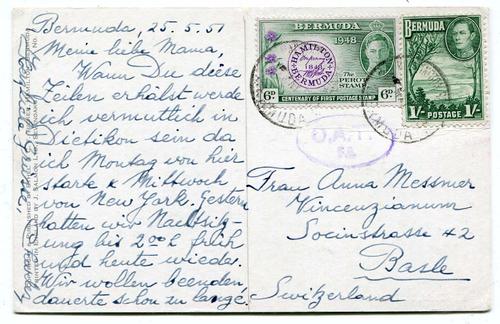 Bermuda, 25.5.51
Meine liebe Mama,
Wann Du diese
Zeilen erhälst werde
ich vermutlich in
Dietikon sein da
ich Montag von hier
starte & Mittwoch
von New York. Gestern
hatten wir Nachtsitz-
ung bis 2ººh früh
und heute wieder.
Wir wollen beenden,
dauerte schon zu lange.
BERMUDA
1848
1948
HAMILTON
BERMUDA
1848
THE PEROT
STAMP
6D
6D
CENTENARY OF FIRST POSTAGE STAMP
BERMUDA
1/-
POSTAGE
1/-
O.A.T.
Frau Anna Messmer
Vincenzianum
Socinstrasse 42
Basle
Switzerland